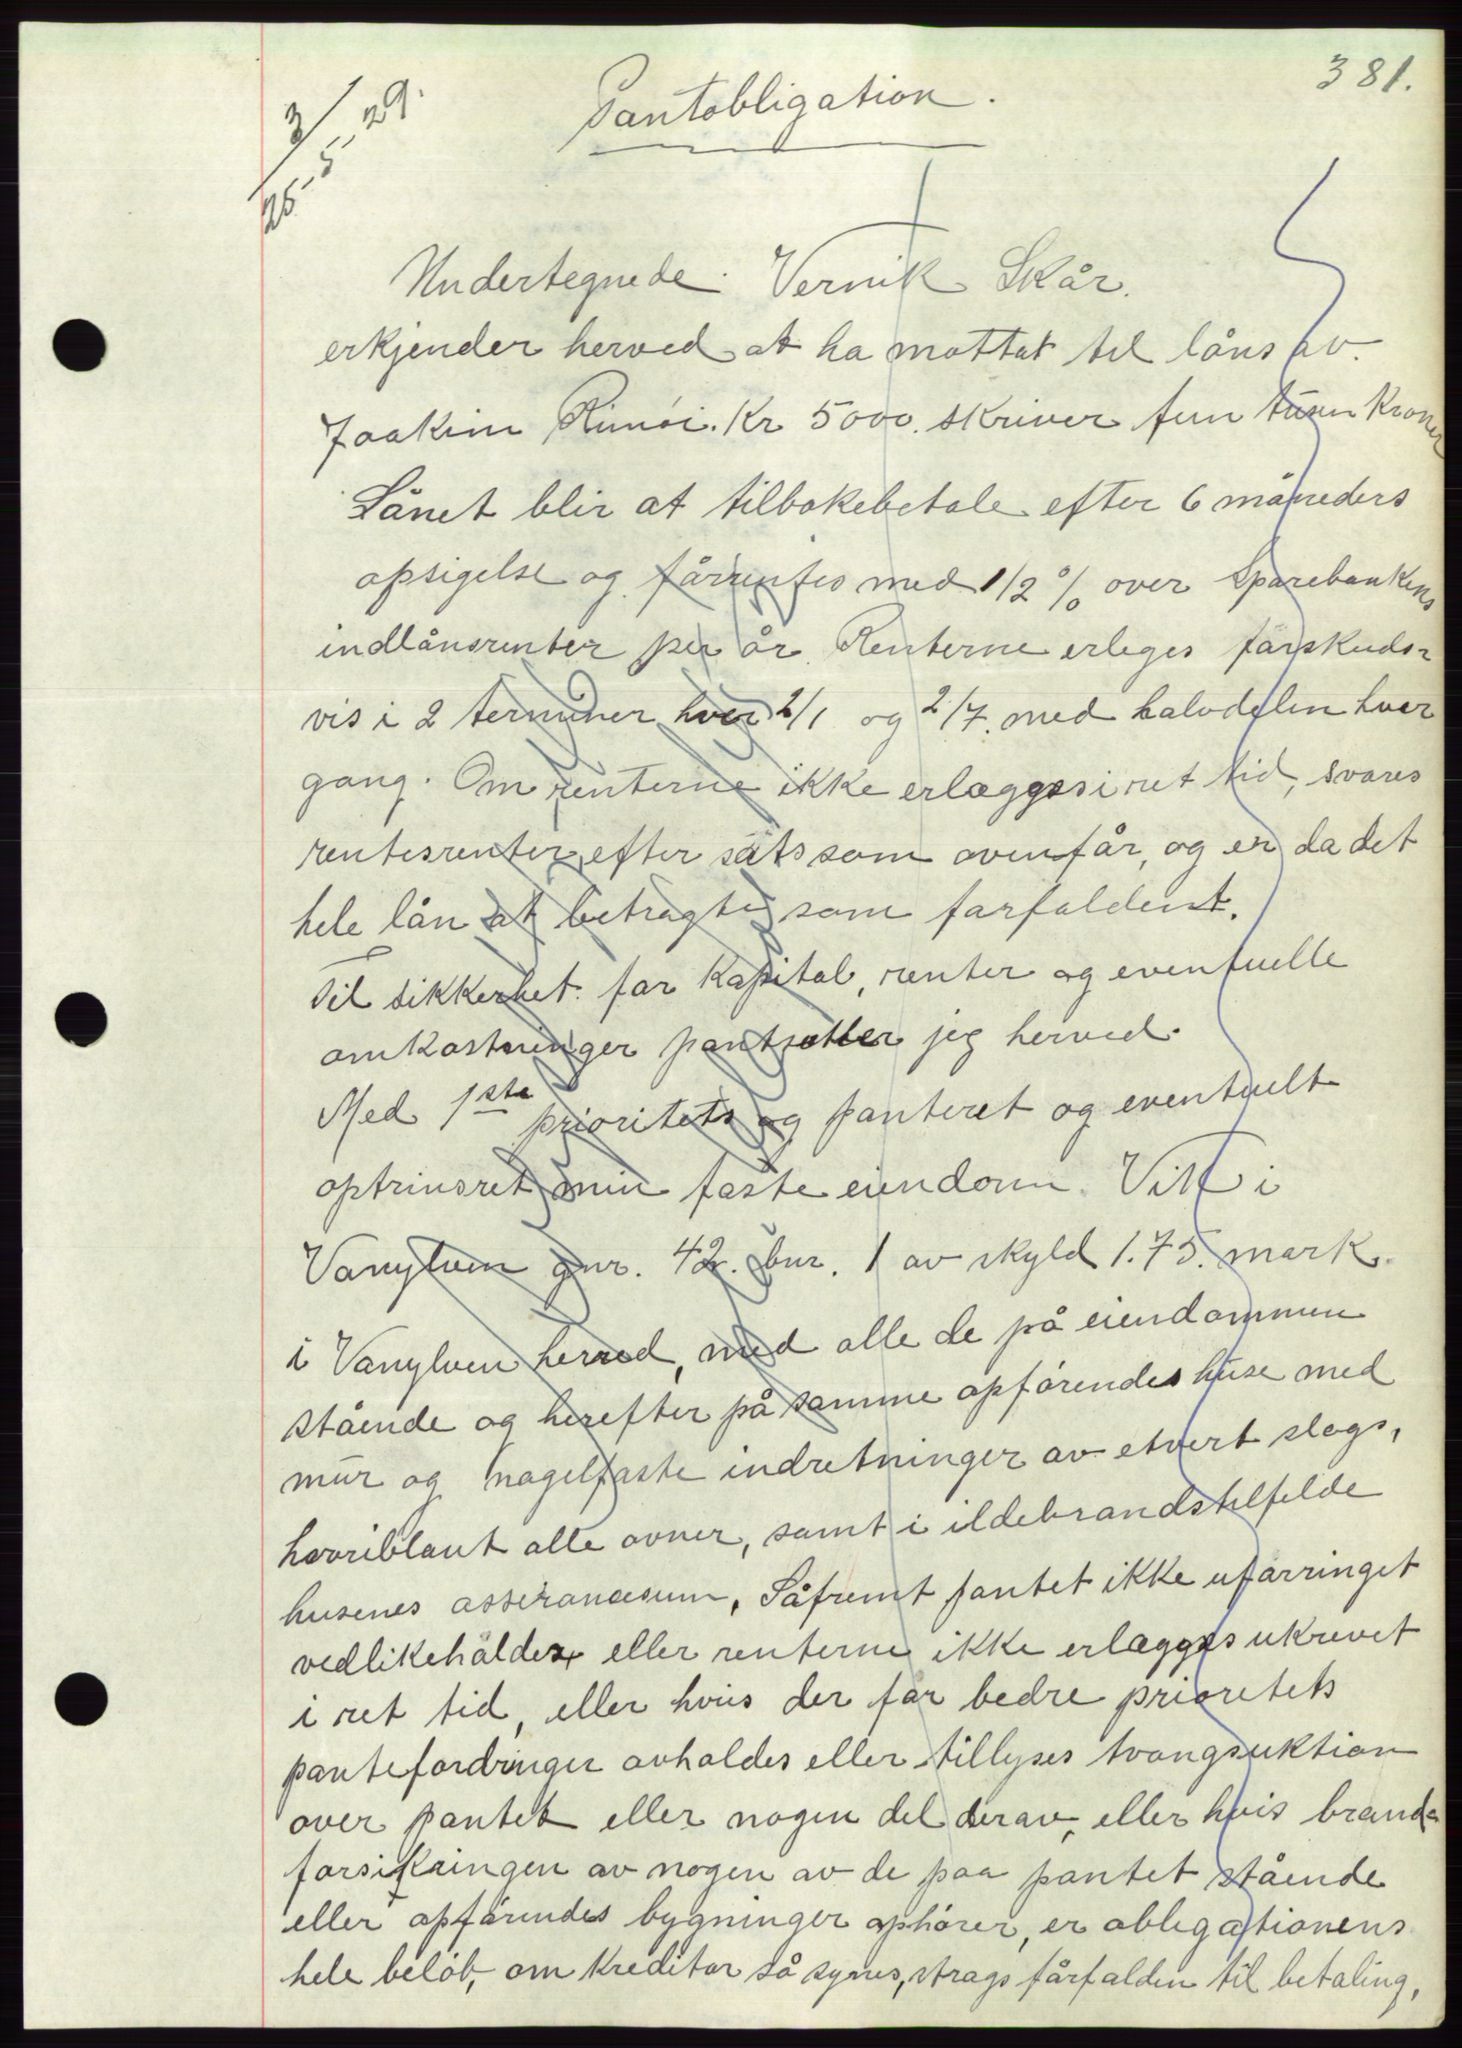 381.
3/25-5-29.
Pantobligation.
Undertegnede Vernik Skår.
erkjender herved at ha mottat til låns av.
Joakim Rimöi. Kr 5000. skriver fem tusen Kroner
Lånet blir at tilbakebetale efter 6 måneders
opsigelse og fårrentes med 1/2 % over Sparebankens
indlånsrenter per år. Renterne erleges fårskuds-
vis i 2 terminer hver 2/1 og 2/7. med halvdelen hver
gang. Om renterne ikke erlægges i ret tid, svares
rentesrenter efter sats som ovenfår, og er da det
hele lån at betragte som farfaldent.
Til sikkerhet for Kapital, renter og eventuelle
omkostninger pantsætter jeg herved.
Med 1ste prioritets og panteret og eventuelt
optrinsret min faste eiendom. Vik i
Vanylven gnr. 42. bnr. 1 av skyld 1.75. mark.
i Vanylven herred, med alle de på eiendommen
stående og herefter på samme opförendes huse med
mur og nagelfaste indretninger av etvert slags,
hvoriblant alle ovner, samt i ildebrandstilfelde
husenes assurancesum, Såfremt pantet ikke ufarringet
vedlikeholdes eller renterne ikke erlægges ukrevet
i ret tid, eller hvis der for bedre prioritets
pantefordringer avholdes eller tillyses tvangsuktion
over pantet eller nogen del derav, eller hvis brand-
forsikringen av nogen av de paa pantet stående
eller opførendes bygninger ophörer, er obligationens
hele belöb, om Kreditor så synes, strags fårfalden til betaling,